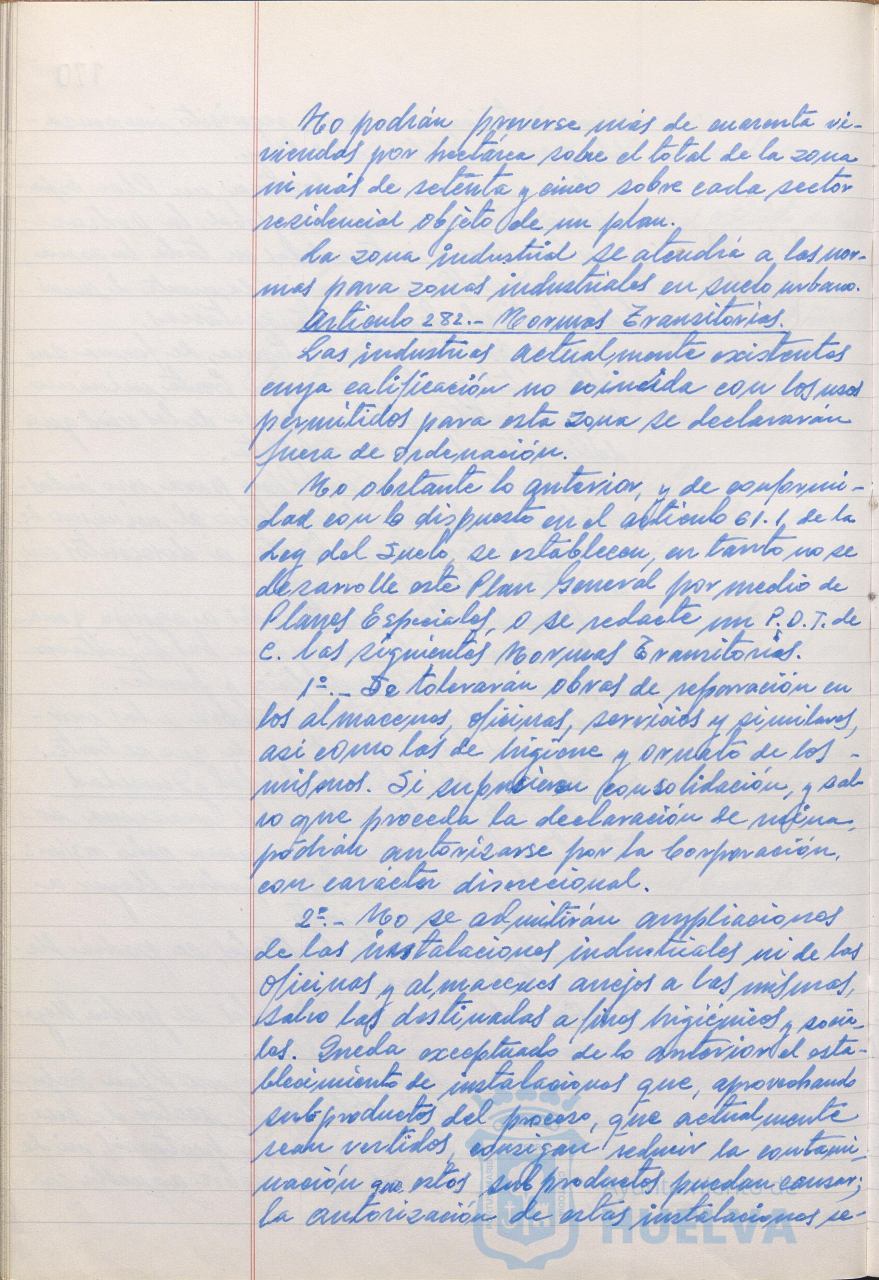 No podrán preverse más de cuarenta vi-
viendas por hectárea sobre el total de la zona
ni más de setenta y cinco sobre cada sector
residencial objeto de un plan.
La zona industrial se atendrá a las nor-
mas para zonas industriales en suelo urbano.
Artículo 282.- Normas Transitorias.
Las industrias actualmente existentes
cuya calificación no coincida con los usos
permitidos para esta zona se declararán
fuera de ordenación.
No obstante lo anterior, y de conformi-
dad con lo dispuesto en el artículo 61.1 de la
Ley del Suelo, se establecen, en tanto no se
desarrolle este Plan General por medio de
Planes Especiales, o se redacte un P.O.T. de
C. las siguientes Normas Transitorias.
1º.- Se tolerarán obras de reparación en
los almacenes, oficinas, servicios y similares,
así como las de higiene y ornato de los -
mismos. Si supusieran consolidación, y sal-
vo que proceda la declaración de ruina,
podrán autorizarse por la Corporación,
con carácter discreccional.
2º.- No se admitirán ampliaciones
de las instalaciones industriales ni de las
oficinas y almacenes anejos a las mismas,
salvo las destinadas a fines higiénicos y socia-
les. Queda exceptuado de lo anterior el esta-
blecimiento de instalaciones que, aprovechando
subproductos del proceso, que actualmente
sean vertidos, consigan reducir la contami-
nación que estos subproductos puedan causar;
la autorización de estas instalaciones se-
Ayuntamiento de
HUELVA